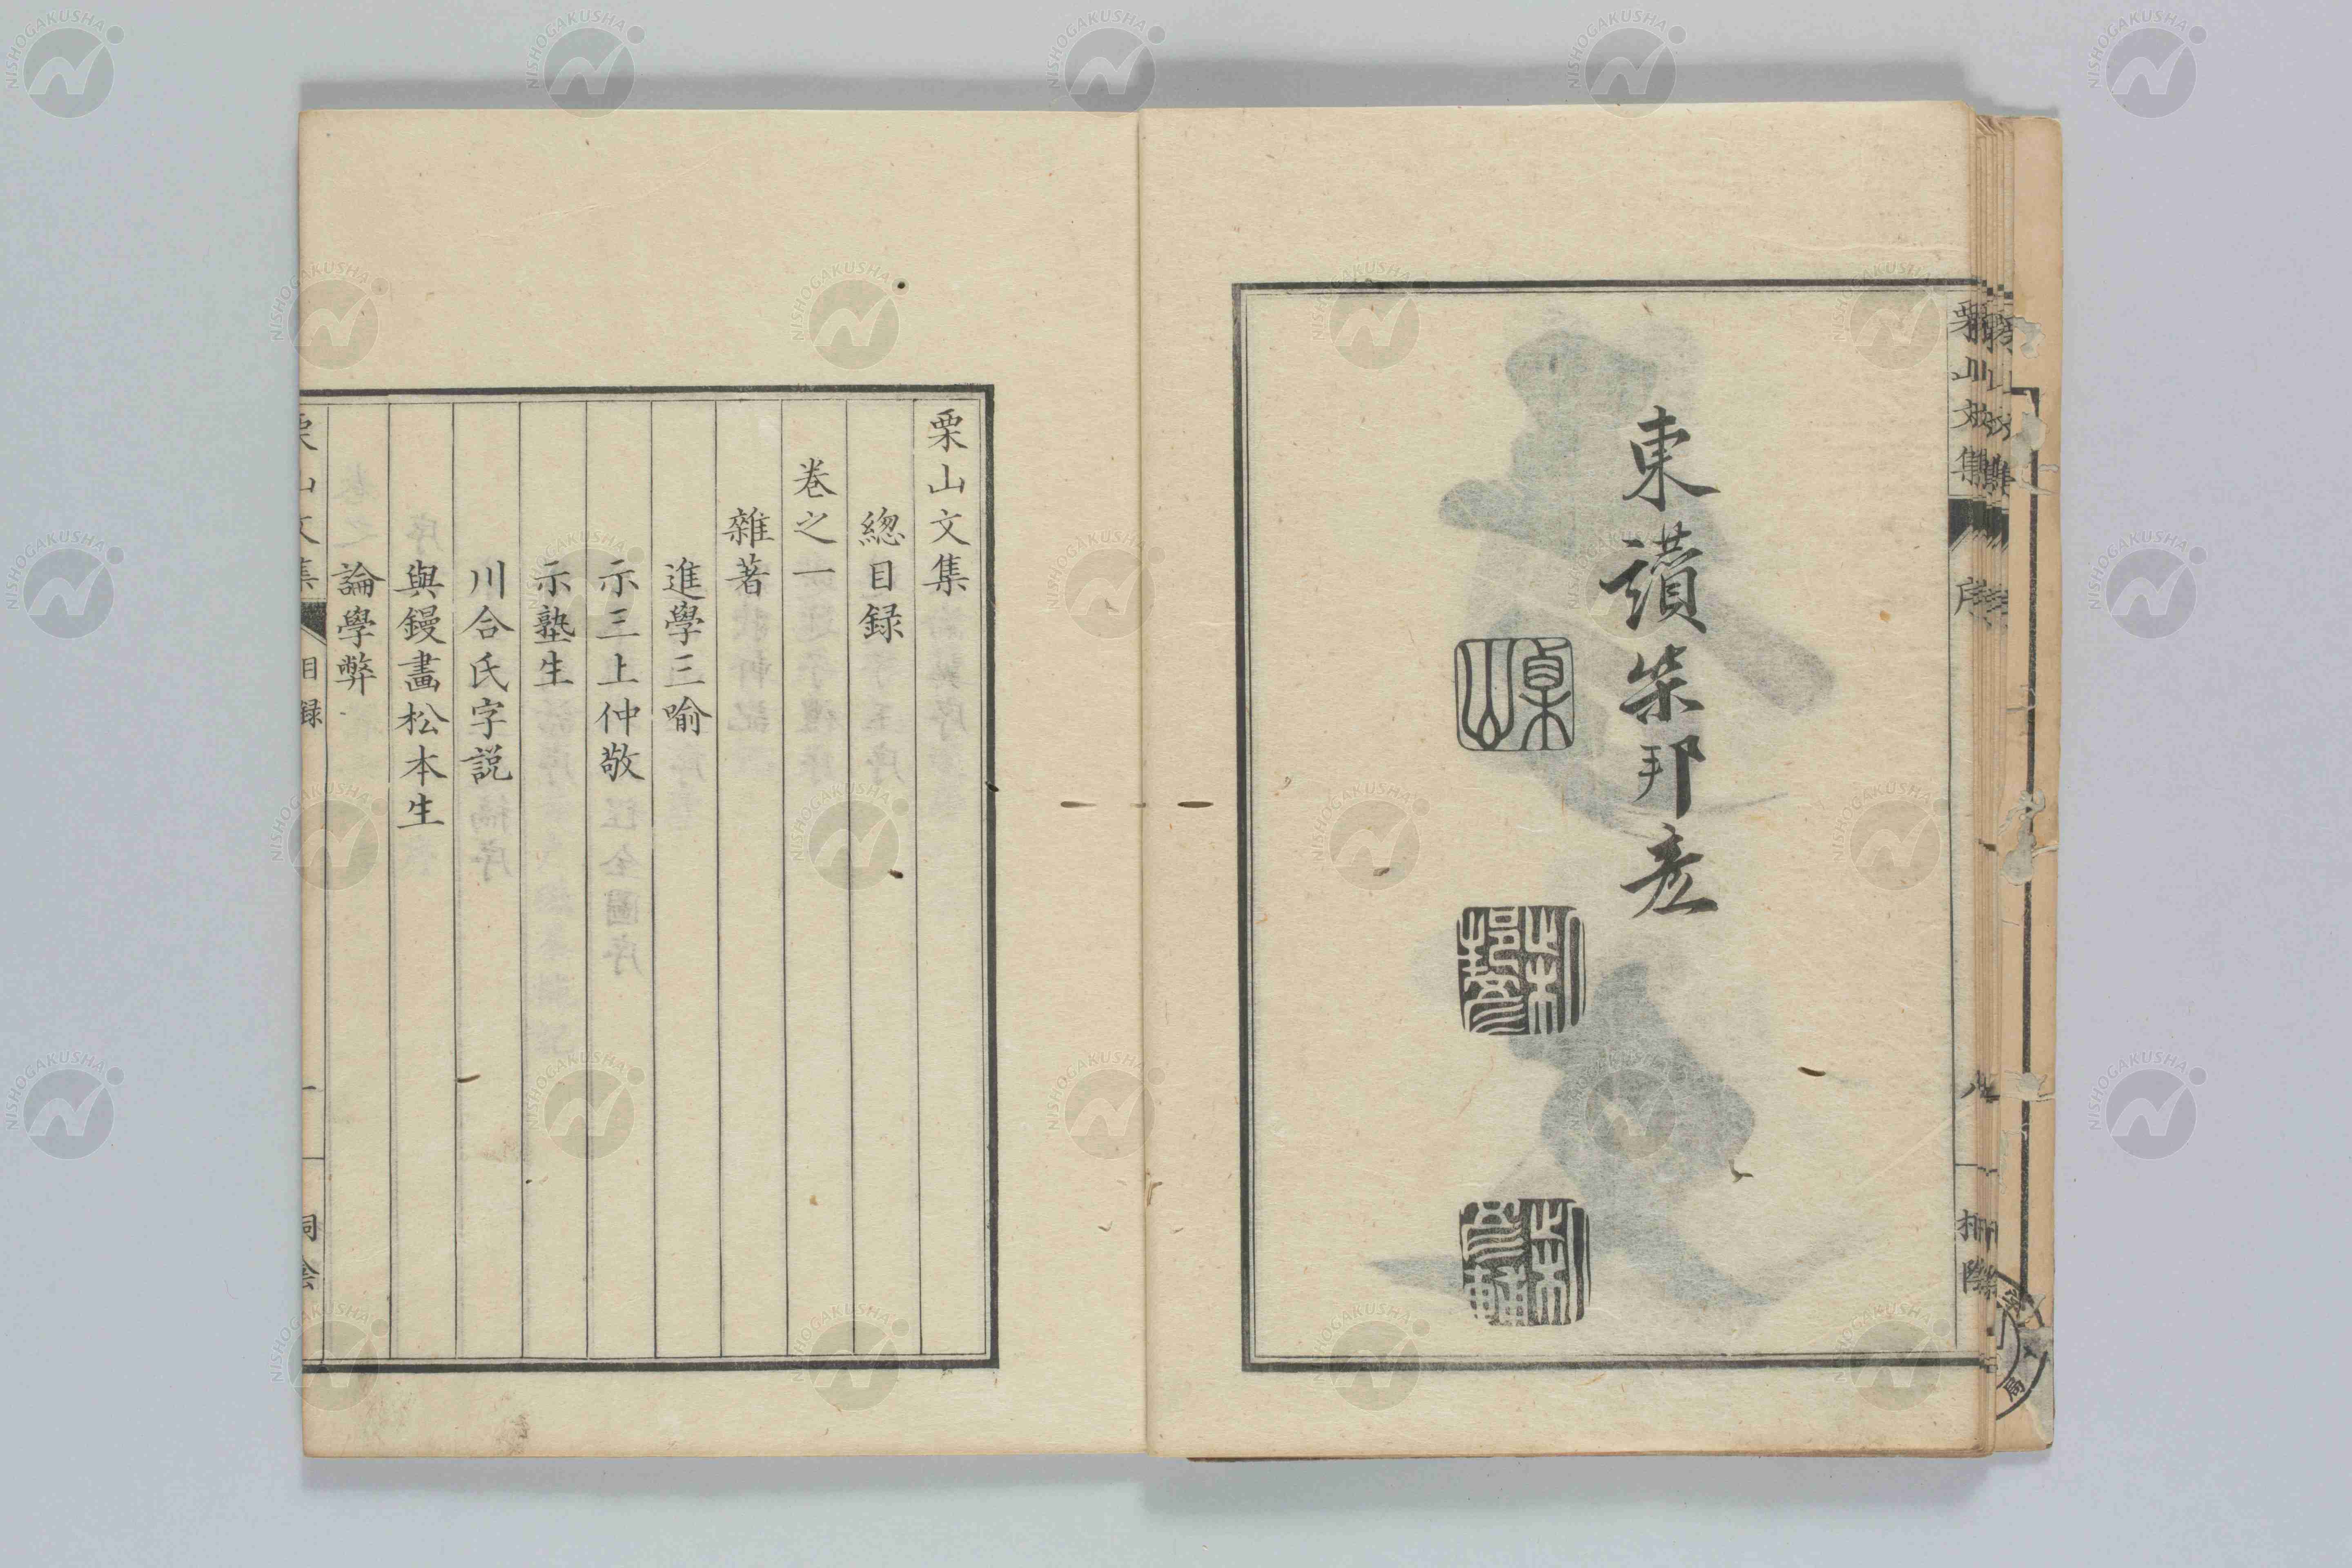 東讃柴邦彦
栗山
柴邦彦
柴彦輔
栗山文集
序
栗山文集
總目録
卷之一
雜著
進學三喻
示三上仲敬
示塾生
川合氏字説
與鏝畫松本生
論學弊
栗山文集
目録
一
NISHOGAKUSHA